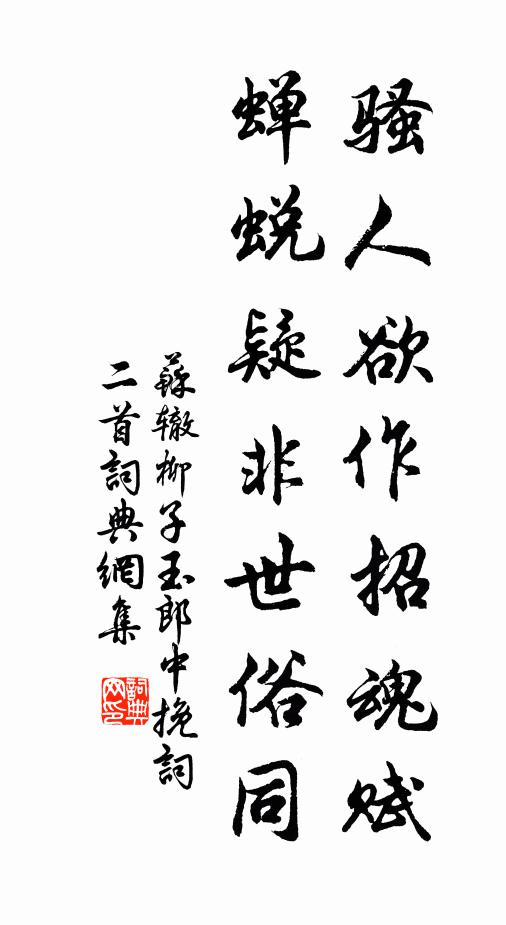 骚人欲作招魂赋
蝉蜕疑非世俗同
蘇辙柳子玉郎中挽詞
二首詞典網集
詞典
网印